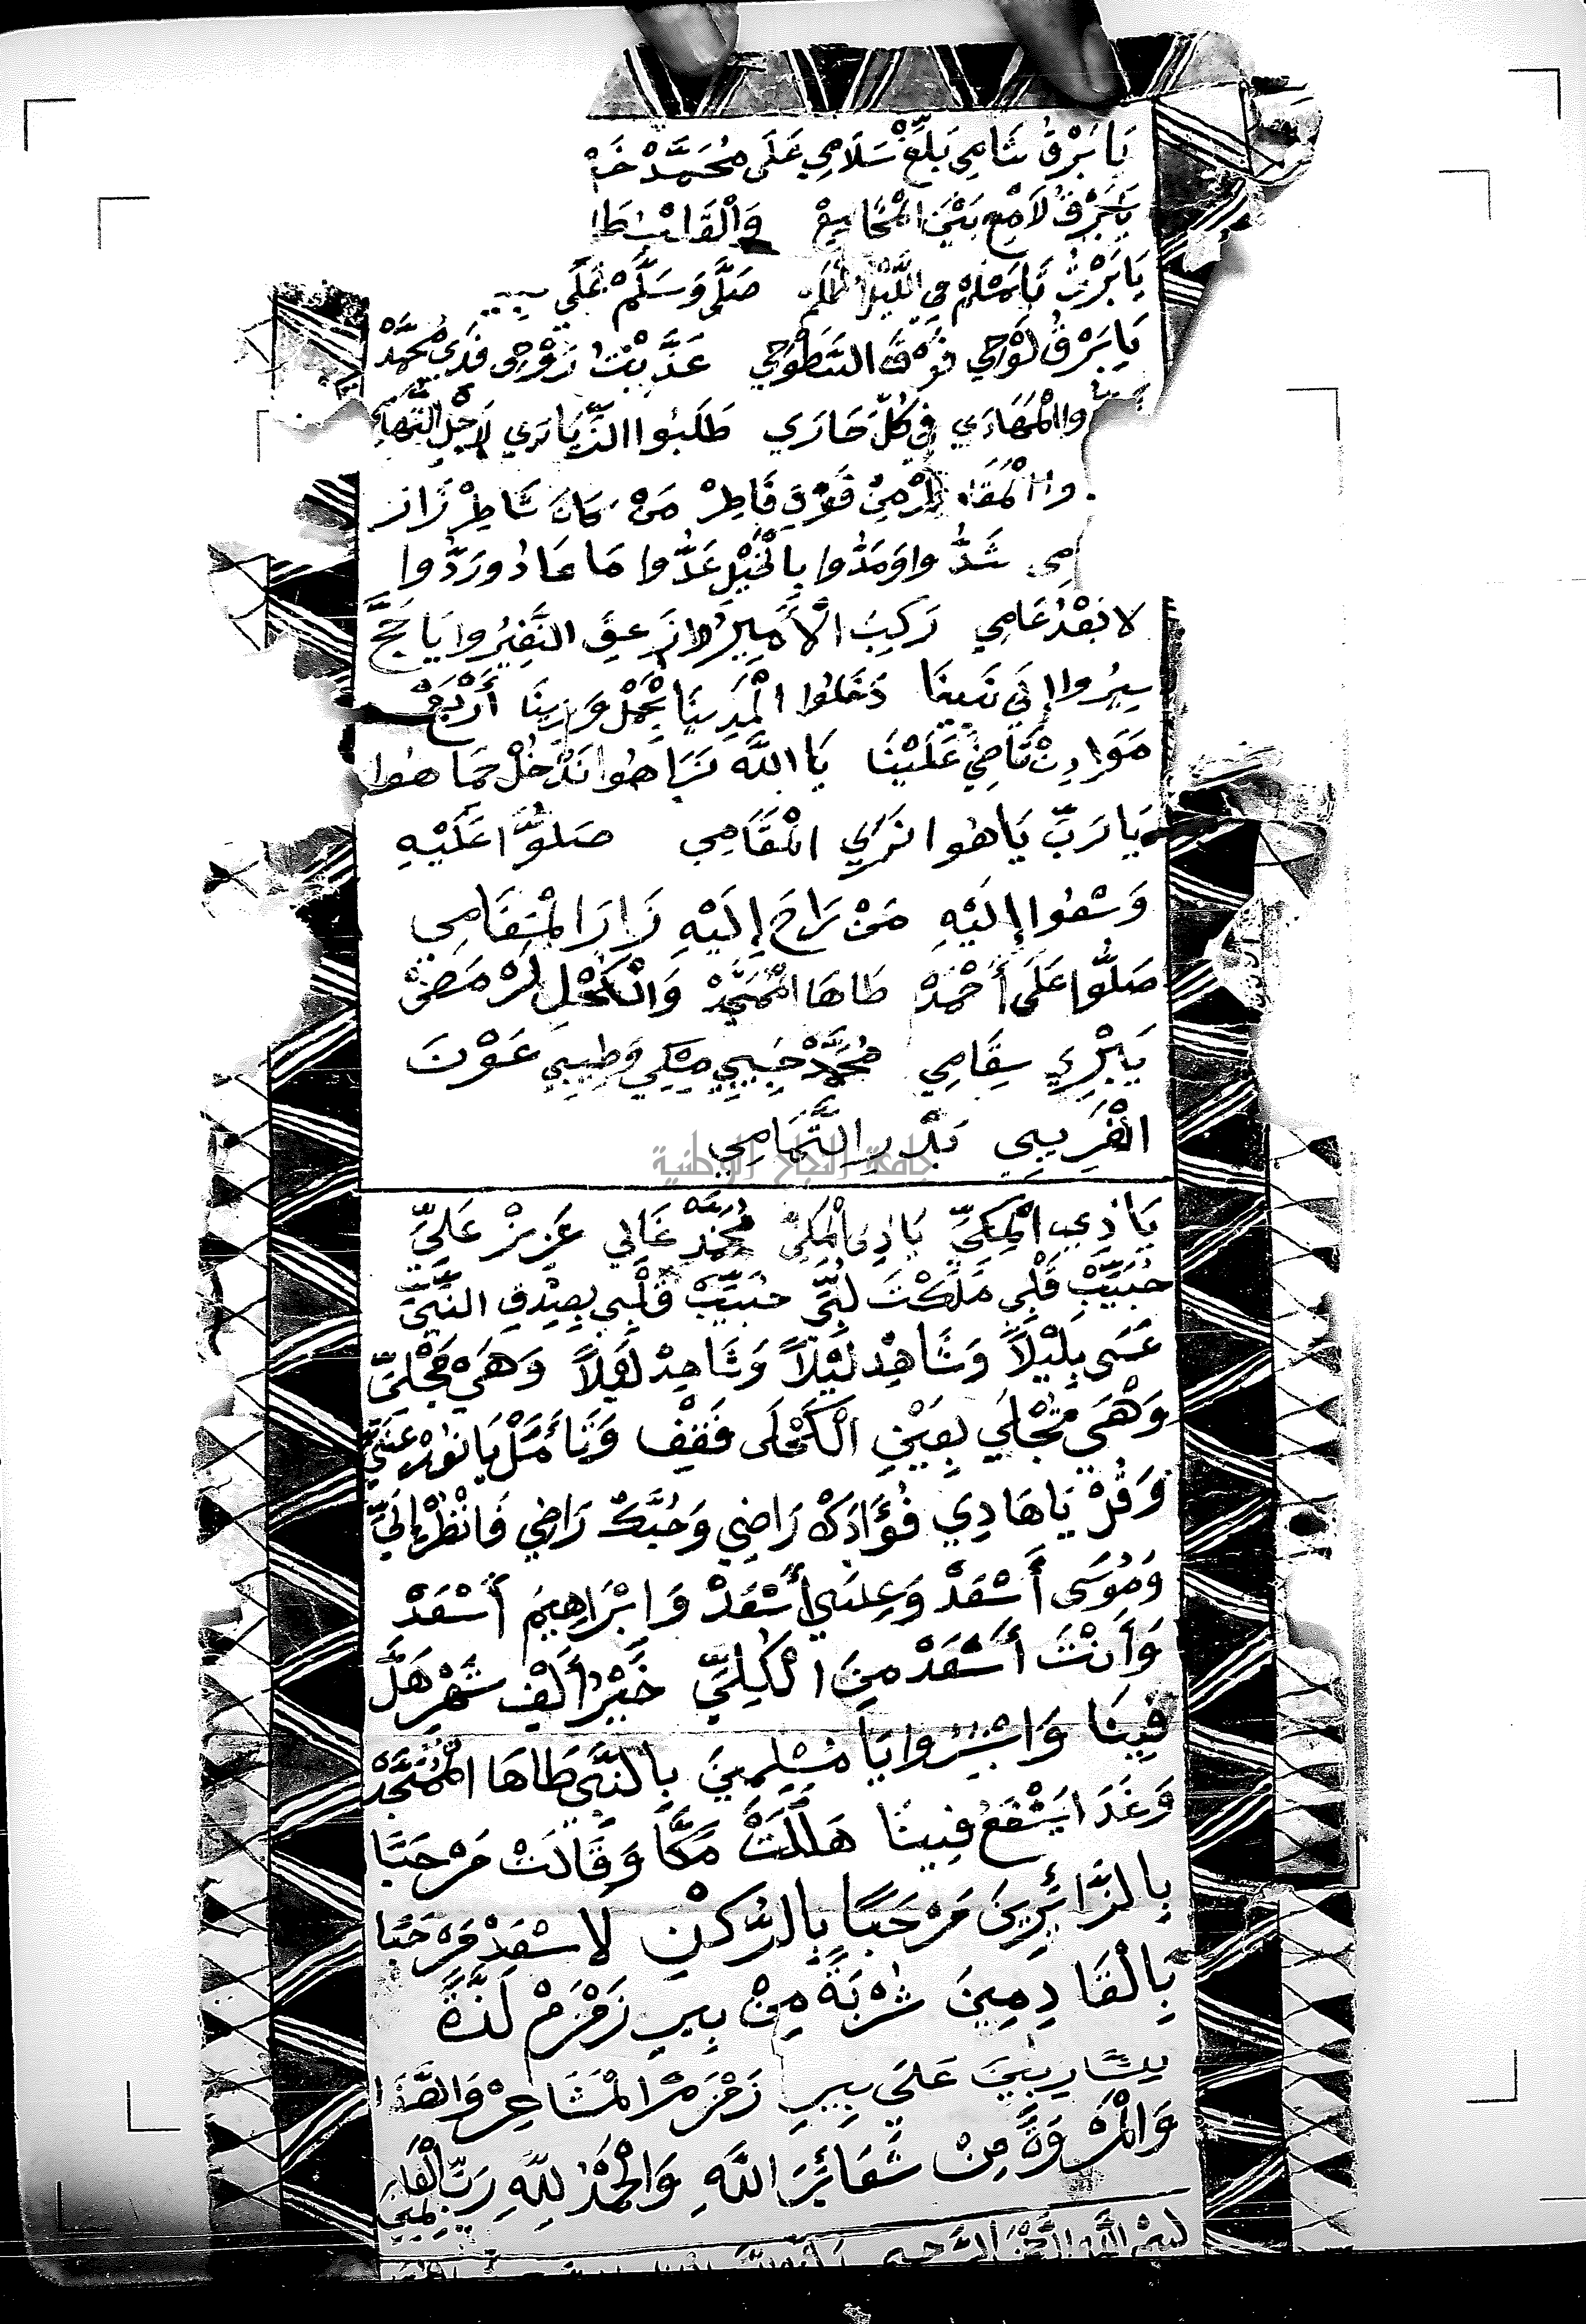 يَا بَرْقُ شَامِي بَلِّغْ سَلَامِي عَلَى مُحَمَّدْ
يَا بَرْقُ لَامِعْ بَيْنَ وَالْقَلْبُ
يَا بَرْقُ يَا مْسَلِّمْ فِي اللَّيْلِ صَلَّى وَسَلَّمْ عَلَى
يَا بَرْقُ لَوْحِي فَوْقَ السَّطُوحِي عَذَّبْتُ رَوْحِى فَدَى مُحَمَّدْ
وا الْمَهَارَي فِي كُلِّ حَارَي طَلَبُوا الزِّيَارَي لَاجْلِ التِّهَا
وا مِنْ فَوْقِ فَاطِرْ مَنْ كَانَ شَاطِرْ زَار
مِى شَدُّوا وَمَدُّوا بِالْخَيْلِ عَدُّوا مَا عَادُ وَرَدُّوا
لا بَعْدُ عَامِي رَكِبَ الْأَمِيرُوا زَعِقَ النَّفِيرُوا يَا حَجَّ
سِيرُوا إِلَى نَبِينَا دَخَلُوا الْمَدِينَا بْحِمْلُ وَزِينَا أَرْبَعْ
مَوَادِنْ تَاضِي عَلَيْنَا يَا اللَّه نَرَاهُوا نَدْخُلْ حِمَاهُوا
يَا رَبِّ يَا هُوا نَرَي الْمَقَامِي صَلُّوا عَلَيْهِ
وَسْعُوا إِلَيْهِ مَنْ رَاحَ إِلَيْهِ زَارَ الْمَقَامِي
صَلُّوا عَلَى أَحْمَدْ طَاهَا الْمُمَجَّدْ وَالْكُحْلِ لَرْمَضْ
يَبْرِي سِقَامِي مُحَمَّدْ حَبِيبِي مِسْكِي وَطِيبِي عَوْنَ
الْغَرِيبِي بَدْرِ التَّمَامِي
يَا ذِي الْمَكِيِّ يَا ذِي الْمَكِيِّ مُحَمَّدْ غَالِي عَزِيزْ عَلَيِّ
حُبَيِّبْ قَلْبِي مَلَكْتَ لُبِّي حُبَيِّبْ قَلْبِي بِصِدْقِ النَّبِيِّ
عَسَى بِلَيْلًا وَشَاهِدْ لَيْلًا وَشَاهِدْ لَيْلًا وَهَيْ مَجْلِيِّ
وَهْيَ مَجْلِي بِعَيْنِ الْكَحْلَى فَقِفْ وَتَأَمَّلْ يَا نُورْ عَيْنَيِّ
وَقُلْ يَا هَادِي فُؤَادَكْ رَاضِي وَحُبَّكْ رَاضِي فَانْظُرْ إِلَيِّ
وَمُوسَى أَسْعَدْ وَعِيسَى أَسْعَدْ وَابْرَاهِيمَ أَسْعَدْ
وَأَنْتَ أَسْعَدْ مِنَ الْكُلِيِّ خَيْرُ أَلْفِ شَهْرِ هَلَّ
فِينَا وَابْشِرُوا يَا مُسْلِمِينَ بِالنَّبِي طَاهَا الْمُمَجَّدْ
وَغَدَا يَشْفَعُ فِينَا هَلَّلَتْ مَكَّا وَقَالَتْ مَرْحَبًا
بِالزَّائِرِينَ مَرْحَبًا بِالرُّكْنِ لا سْعَدْ مَرْحَبًا
بِالْقَادِمِينَ شُرْبَةً مِنْ بِيرِ زَمْزَمْ لَذَّةً
لِشَّارِبِينَ عَلَى بِيرِ زَمْزَمْ الْمَشَاعِرْ وَالصَّفَا
وَالْمَرْوَةَ مِنْ شَعَائِرَ اللَّهِ وَالْحَمْدُ لِلَّهِ رَبِّ الْعَالَمِينَ
بِسْمِ اللَّهِ الرَّحْمَنِ الرَّحِيمِ
جامعة النجاح الوطنية